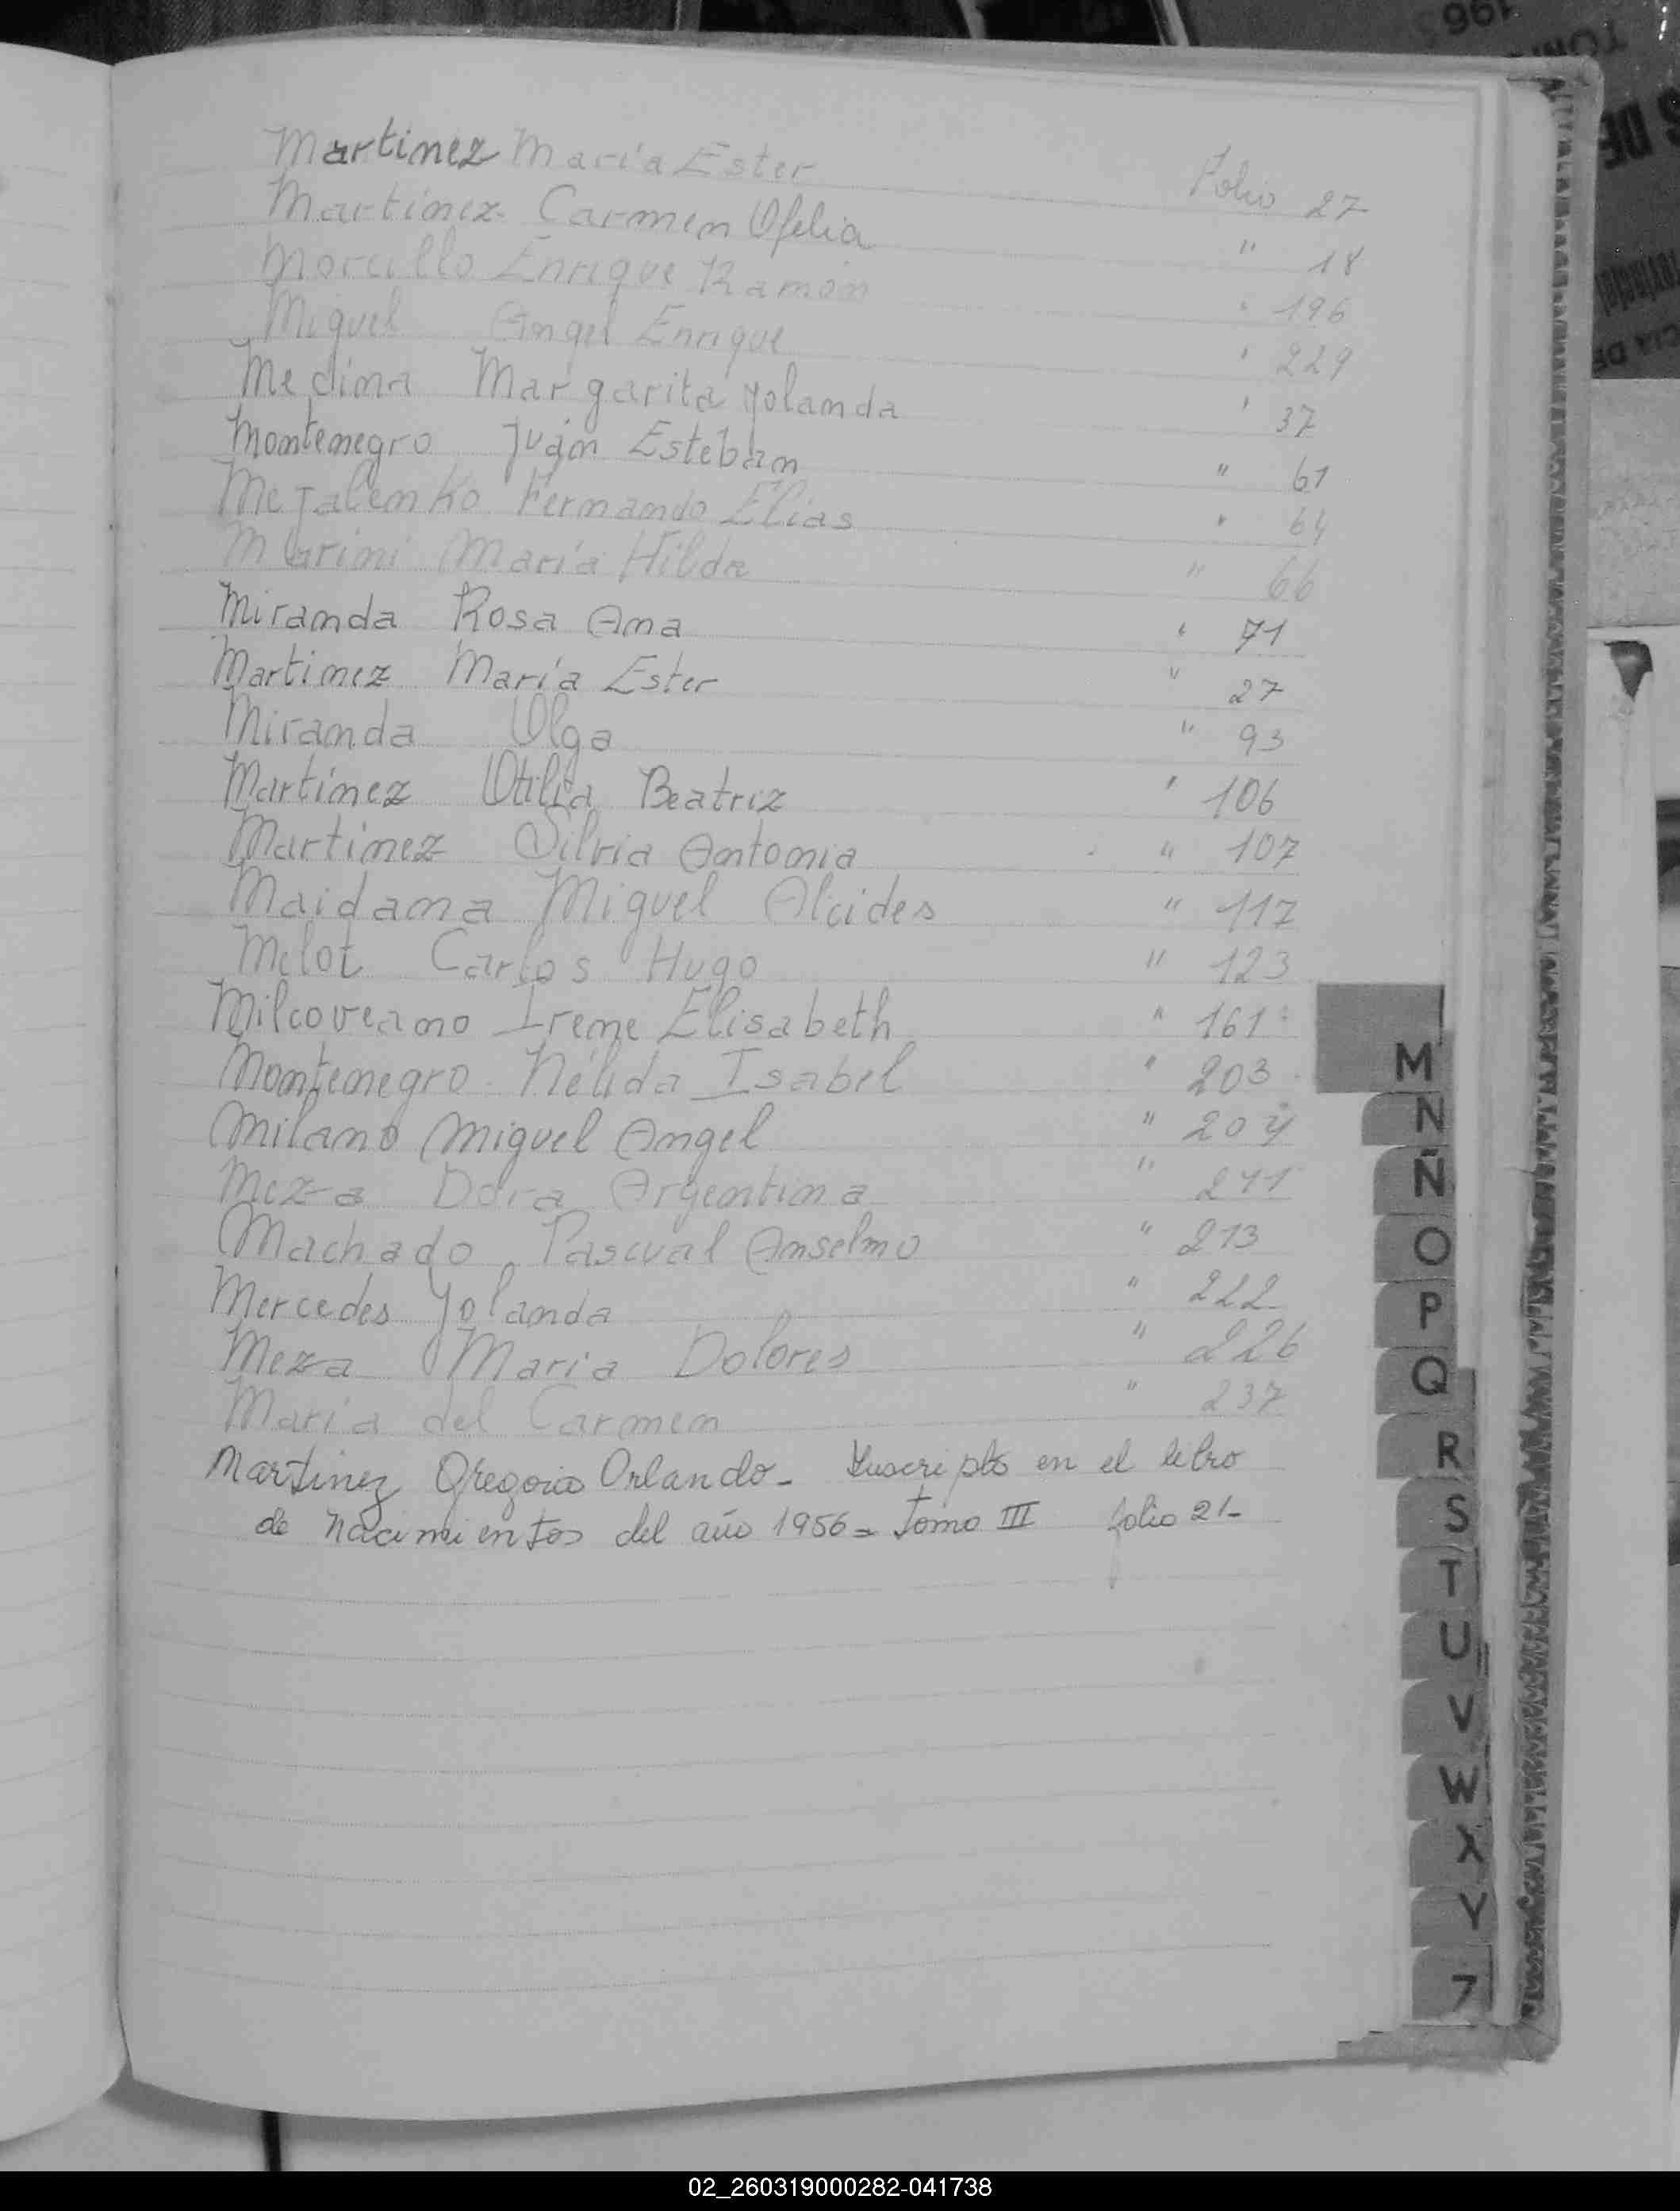 Martinez Maria Ester Folio 27
Martinez Carmen Ofelia " 18
Morcillo Enrique Ramón " 196
Miguel Angel Enrique " 229
Medina Margarita Yolanda " 37
Montenegro Juan Esteban " 61
Fernando Elias " 64
Marini María Hilda " 66
Miranda Rosa Ana " 71
Martinez María Ester " 27
Miranda Olga " 93
Martínez Otilia Beatriz " 106
Martinez Silvia Antonia " 107
Maidana Miguel Alcides " 117
Melot Carlos Hugo " 123
Milcoveano Irene Elisabeth " 161
Montenegro Nélida Isabel " 203
Milano Miguel Angel " 204
Meza Dora Argentina " 211
Machado Pascual Anselmo " 213
Mercedes Yolanda " 222
Meza Maria Dolores " 226
Maria del Carmen " 237
Martinez Gregorio Orlando - Inscripto en el libro
de nacimientos del año 1956 = Tomo III folio 21-
M
N
Ñ
O
P
Q
R
S
T
U
V
W
X
Y
Z
02_260319000282-041738